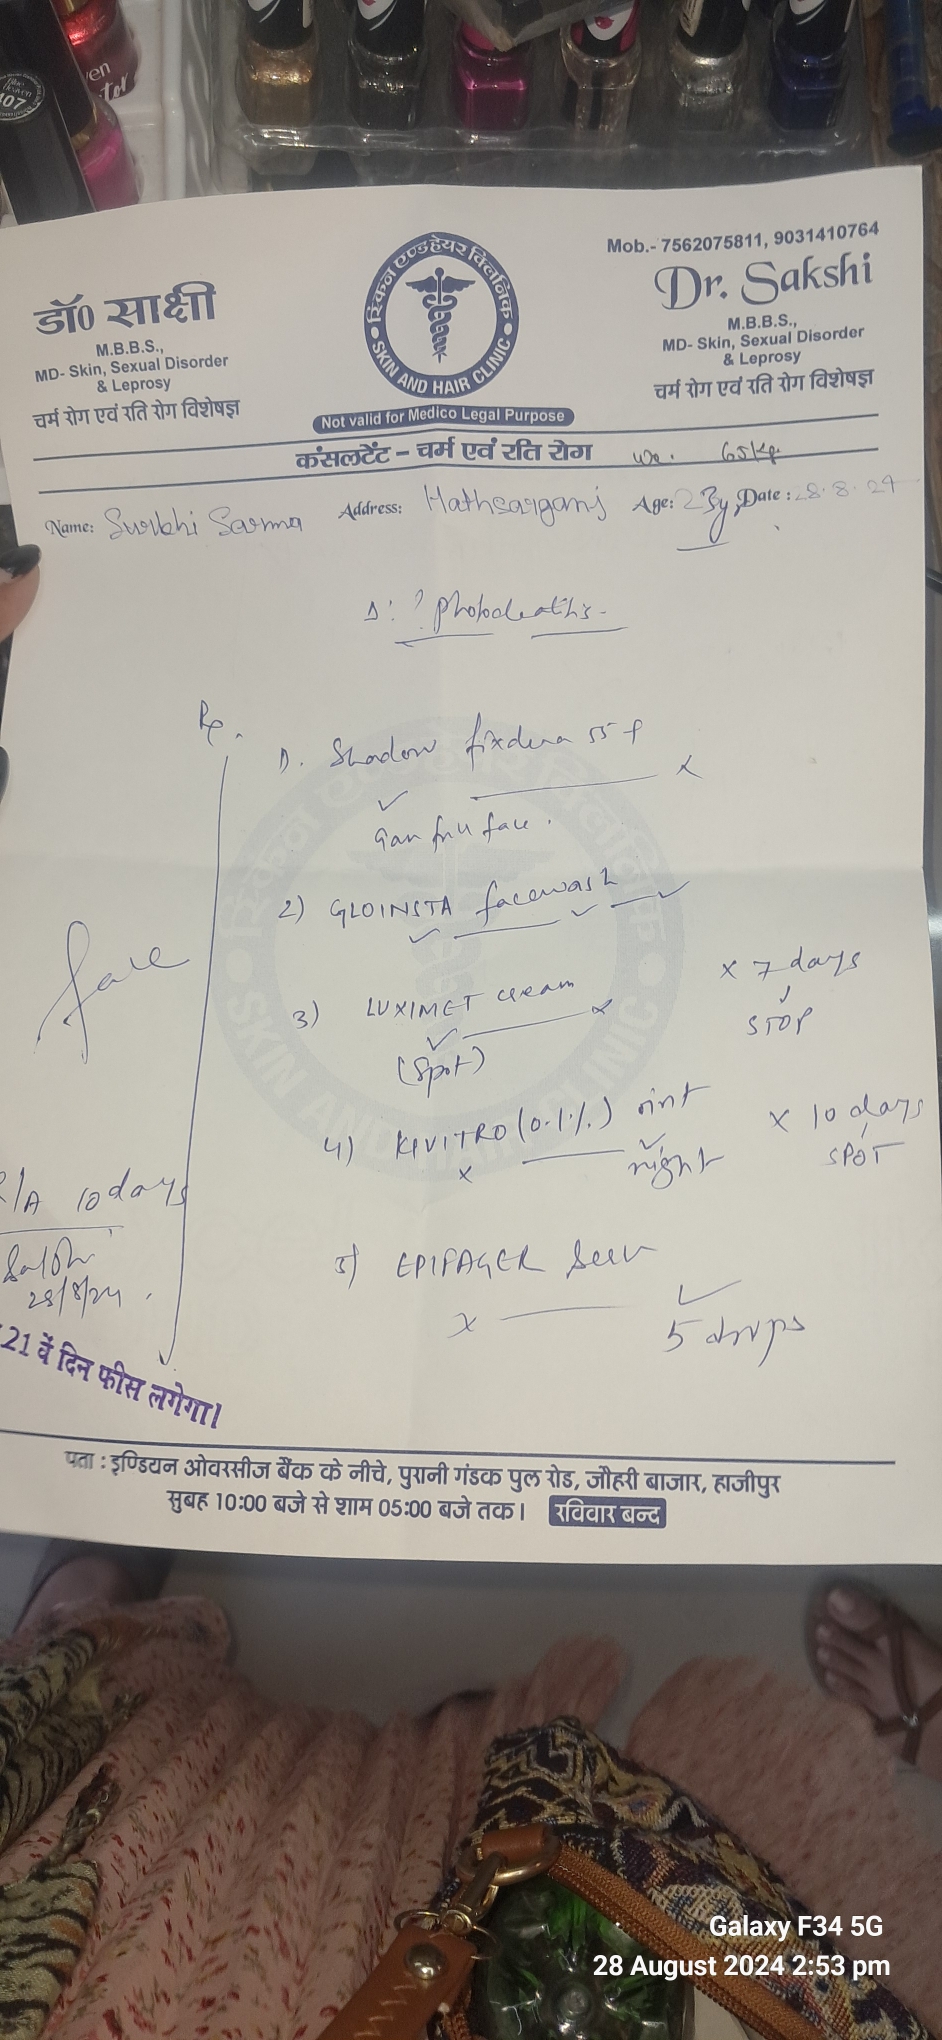 407
Mob.- 7562075811, 9031410764
डॉ0 साक्षी
M.B.B.S.,
MD- Skin, Sexual Disorder
& Leprosy
चर्म रोग एवं रति रोग विशेषज्ञ
स्किन एण्ड हेयर क्लिनिक
SKIN AND HAIR CLINIC
Not valid for Medico Legal Purpose
Dr. Sakshi
M.B.B.S.,
MD- Skin, Sexual Disorder
& Leprosy
चर्म रोग एवं रति रोग विशेषज्ञ
कंसलटेंट – चर्म एवं रति रोग 65 kg
Name: Surbhi Sarma Address: Hathsarganj Age: 23y Date: 28.8.24
Rx.
1). Shadow
face.
2) GLOINSTA facewash
face
3) LUXIMET cream x 7 days
STOP
(Spot)
4) KIVITRO (0.1%) oint x 10 days
night SPOT
10 days
28/8/24
5) EPIFAGER
5 drops
21 वें दिन फीस लगेगा।
पता : इण्डियन ओवरसीज बैंक के नीचे, पुरानी गंडक पुल रोड, जौहरी बाजार, हाजीपुर
सुबह 10:00 बजे से शाम 05:00 बजे तक। रविवार बन्द
Galaxy F34 5G
28 August 2024 2:53 pm